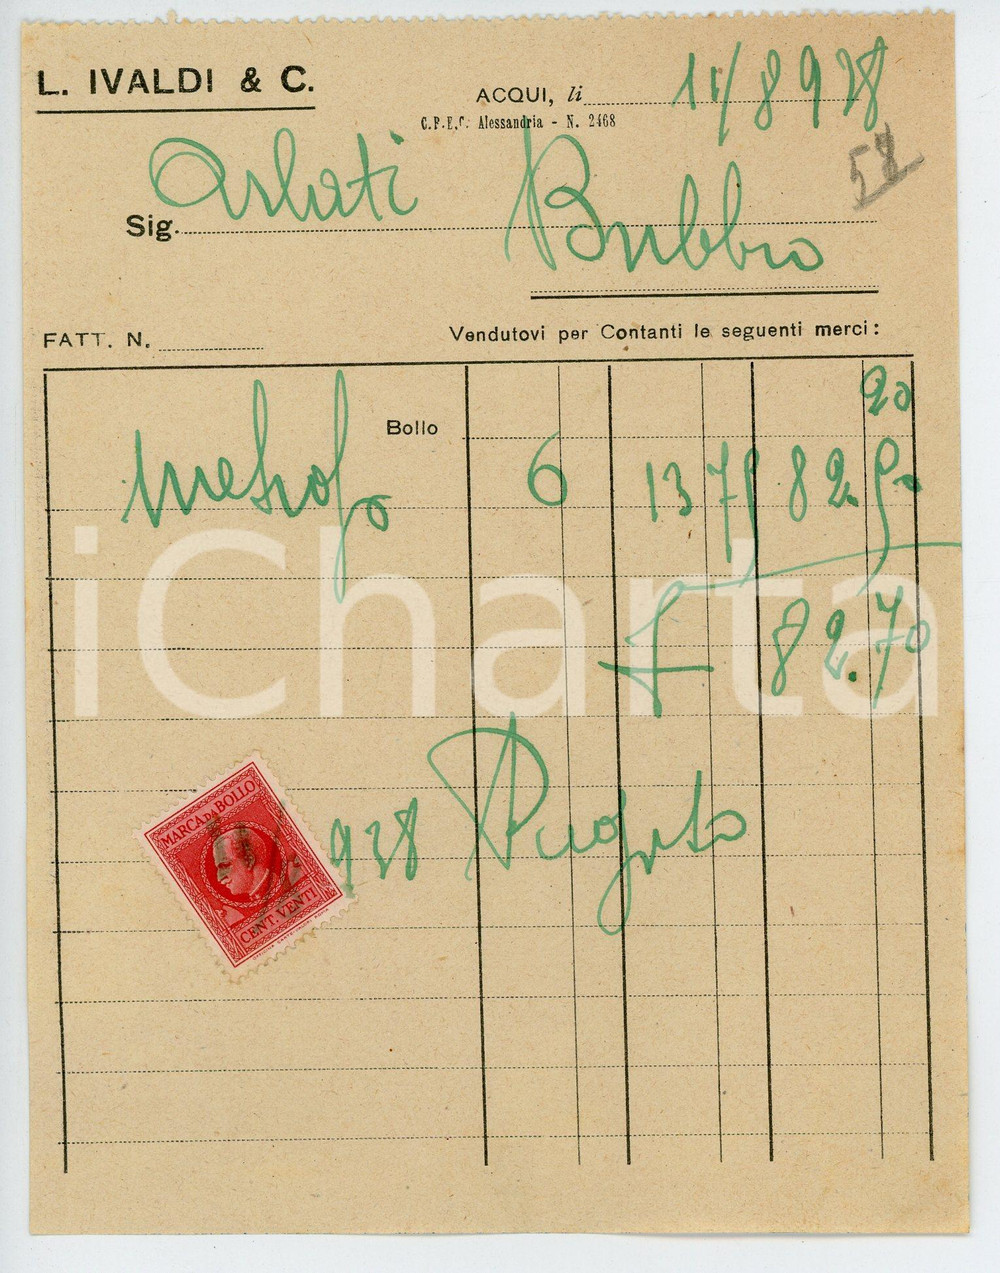 L. IVALDI & C.
ACQUI, li 11/8 938
C.P.E.C. Alessandria - N. 2468
58
Sig. Arlati Bubbio
FATT. N.
Vendutovi per Contanti le seguenti merci:
Bollo 20
6 13 75 82.50
£ 82.70
Pugato
938
MARCA DA BOLLO
CENT. VENTI
iCharta